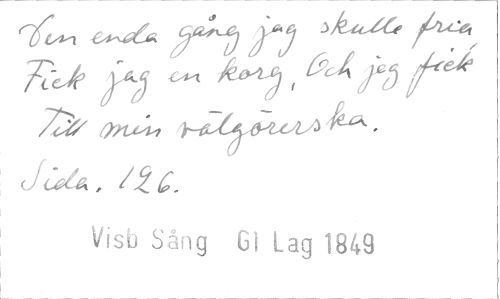 Den enda gång jag skulle fria
Fick jag en korg, Och jag fick
Till min välgörerska.
Sida. 126.
Visb Sång Gl Lag 1849